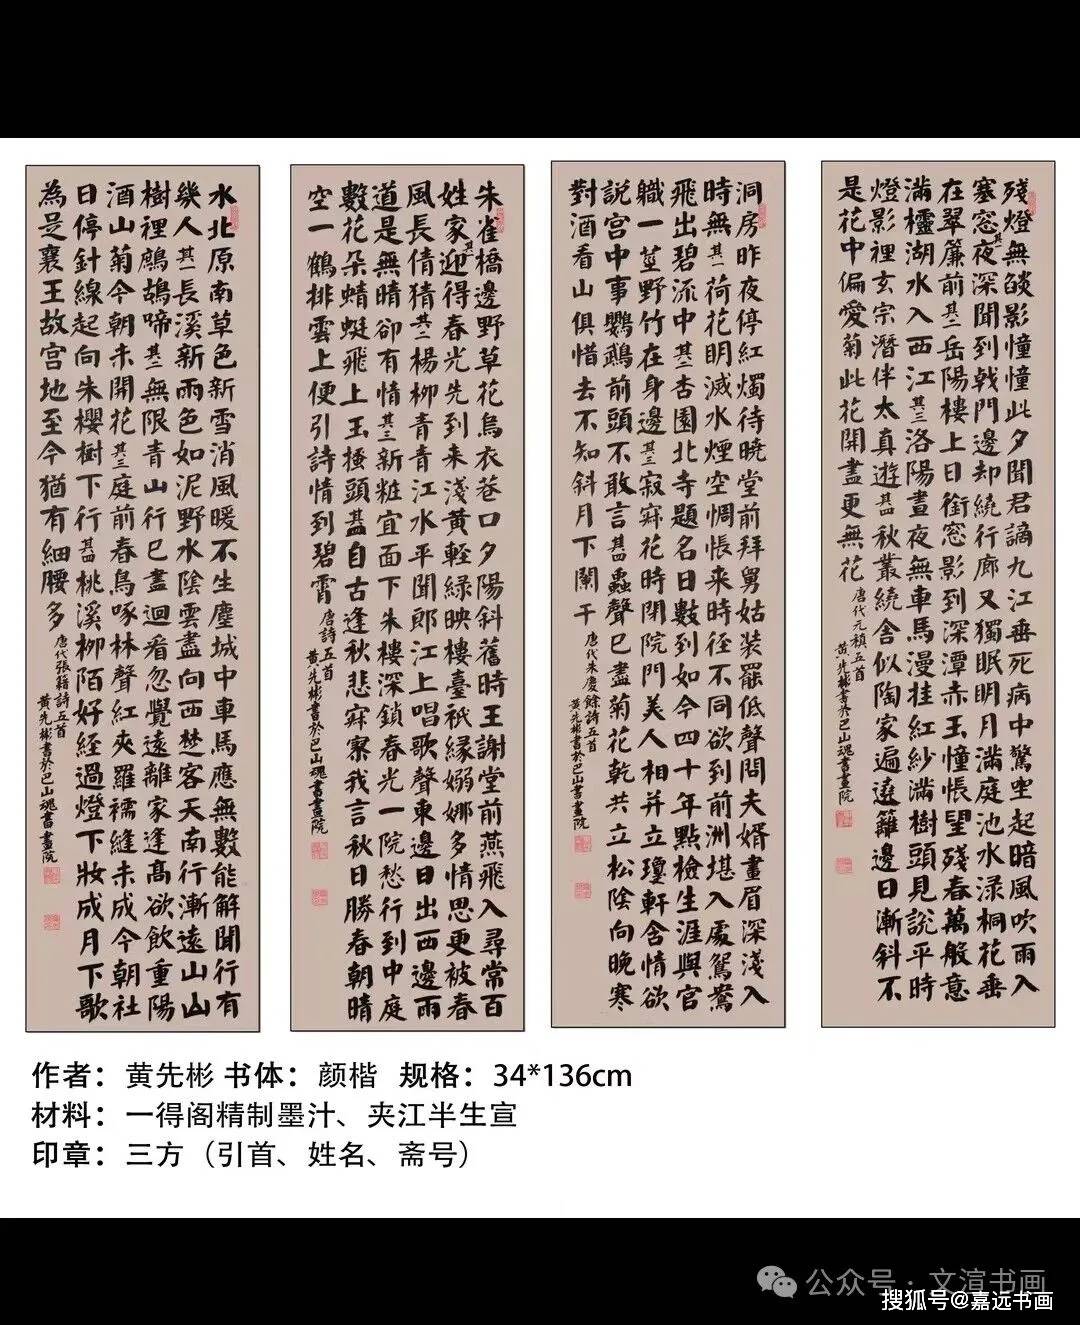 殘燈無燄影憧憧此夕聞君謫九江垂死病中驚坐起暗風吹雨入
寒窓其一夜深聞到戟門邊却繞行廊又獨眠明月滿庭池水渌桐花垂
在翠簾前其二岳陽樓上日銜窓影到深潭赤玉憧悵望殘春萬般意
滿櫺湖水入西江其三洛陽晝夜無車馬漫挂紅紗滿樹頭見說平時
燈影裡玄宗潛伴太真遊其四秋叢繞舍似陶家遍遶籬邊日漸斜不
是花中偏愛菊此花開盡更無花
唐代元稹五首
黄先彬書於巴山魂書畫院
洞房昨夜停紅燭待曉堂前拜舅姑裝罷低聲問夫婿畫眉深淺入
時無其一荷花明滅水煙空惆悵来時径不同欲到前洲堪入處鴛鴦
飛出碧流中其二杏園北寺題名日數到如今四十年點檢生涯與官
職一莖野竹在身邊其三寂寂花時閉院門美人相并立瓊軒含情欲
說宫中事鸚鵡前頭不敢言其四蟲聲已盡菊花乾共立松陰向晚寒
對酒看山俱惜去不知斜月下闌干
唐代朱慶餘詩五首
黄先彬書於巴山書畫院
朱雀橋邊野草花烏衣巷口夕陽斜舊時王謝堂前燕飛入尋常百
姓家其一迎得春光先到来淺黄輕緑映樓臺衹縁嫋娜多情思更被春
風長倩猜其二楊柳青青江水平聞郎江上唱歌聲東邊日出西邊雨
道是無晴卻有情其三新粧宜面下朱樓深鎖春光一院愁行到中庭
數花朵蜻蜓飛上玉搔頭其四自古逢秋悲寂寥我言秋日勝春朝晴
空一鶴排雲上便引詩情到碧霄
唐詩五首
黄先彬書於巴山魂書畫院
水北原南草色新雪消風暖不生塵城中車馬應無數能解聞行有
幾人其一長溪新雨色如泥野水陰雲盡向西楚客天南行漸遠山山
樹裡鷓鴣啼其二無限青山行已盡迴看忽覺遠離家逢髙欲飲重陽
酒山菊今朝未開花其三庭前春鳥啄林聲紅夾羅襦縫未成今朝社
日停針線起向朱櫻樹下行其四桃溪柳陌好經過燈下妝成月下歌
為是襄王故宫地至今猶有細腰多
唐代張籍詩五首
黄先彬書於巴山魂書畫院
作者：黄先彬 书体：颜楷 规格：34*136cm
材料：一得阁精制墨汁、夹江半生宣
印章：三方（引首、姓名、斋号）
公众号·文渲书画
搜狐号@嘉远书画